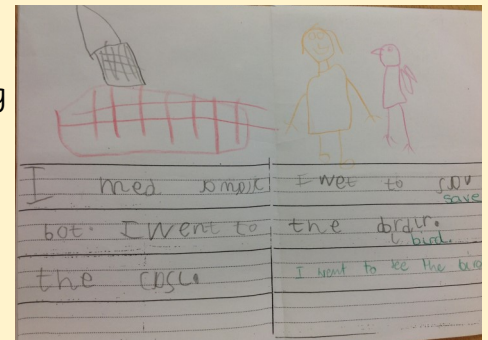 g
I med a magic
bot. I went to
the casl.
I wet to sav
save
the brdr.
bird.
I want to see the bird